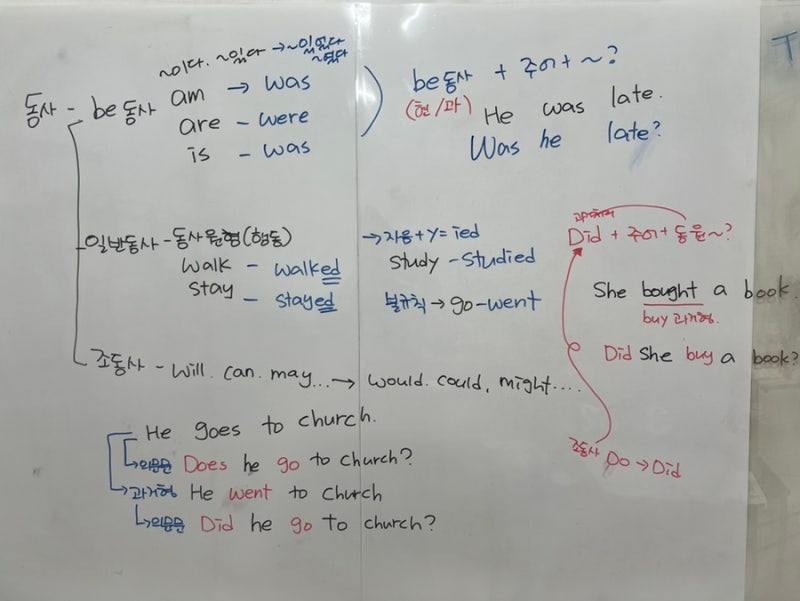 ~이다. ~있다 → ~이었다
~였다
동사 - be동사 am → was
are - were
is - was
be동사 + 주어 + ~?
(현/과) He was late.
Was he late?
일반동사 - 동사원형(행동)
walk - walked
stay - stayed
→ 자음+y = ied
study - studied
불규칙 → go - went
Did + 주어 + 동원~?
She bought a book.
buy 과거형.
Did she buy a book?
조동사 - will. can. may... → would. could, might....
조동사 Do → Did
He goes to church.
의문문 Does he go to church?
과거형 He went to church
의문문 Did he go to church?